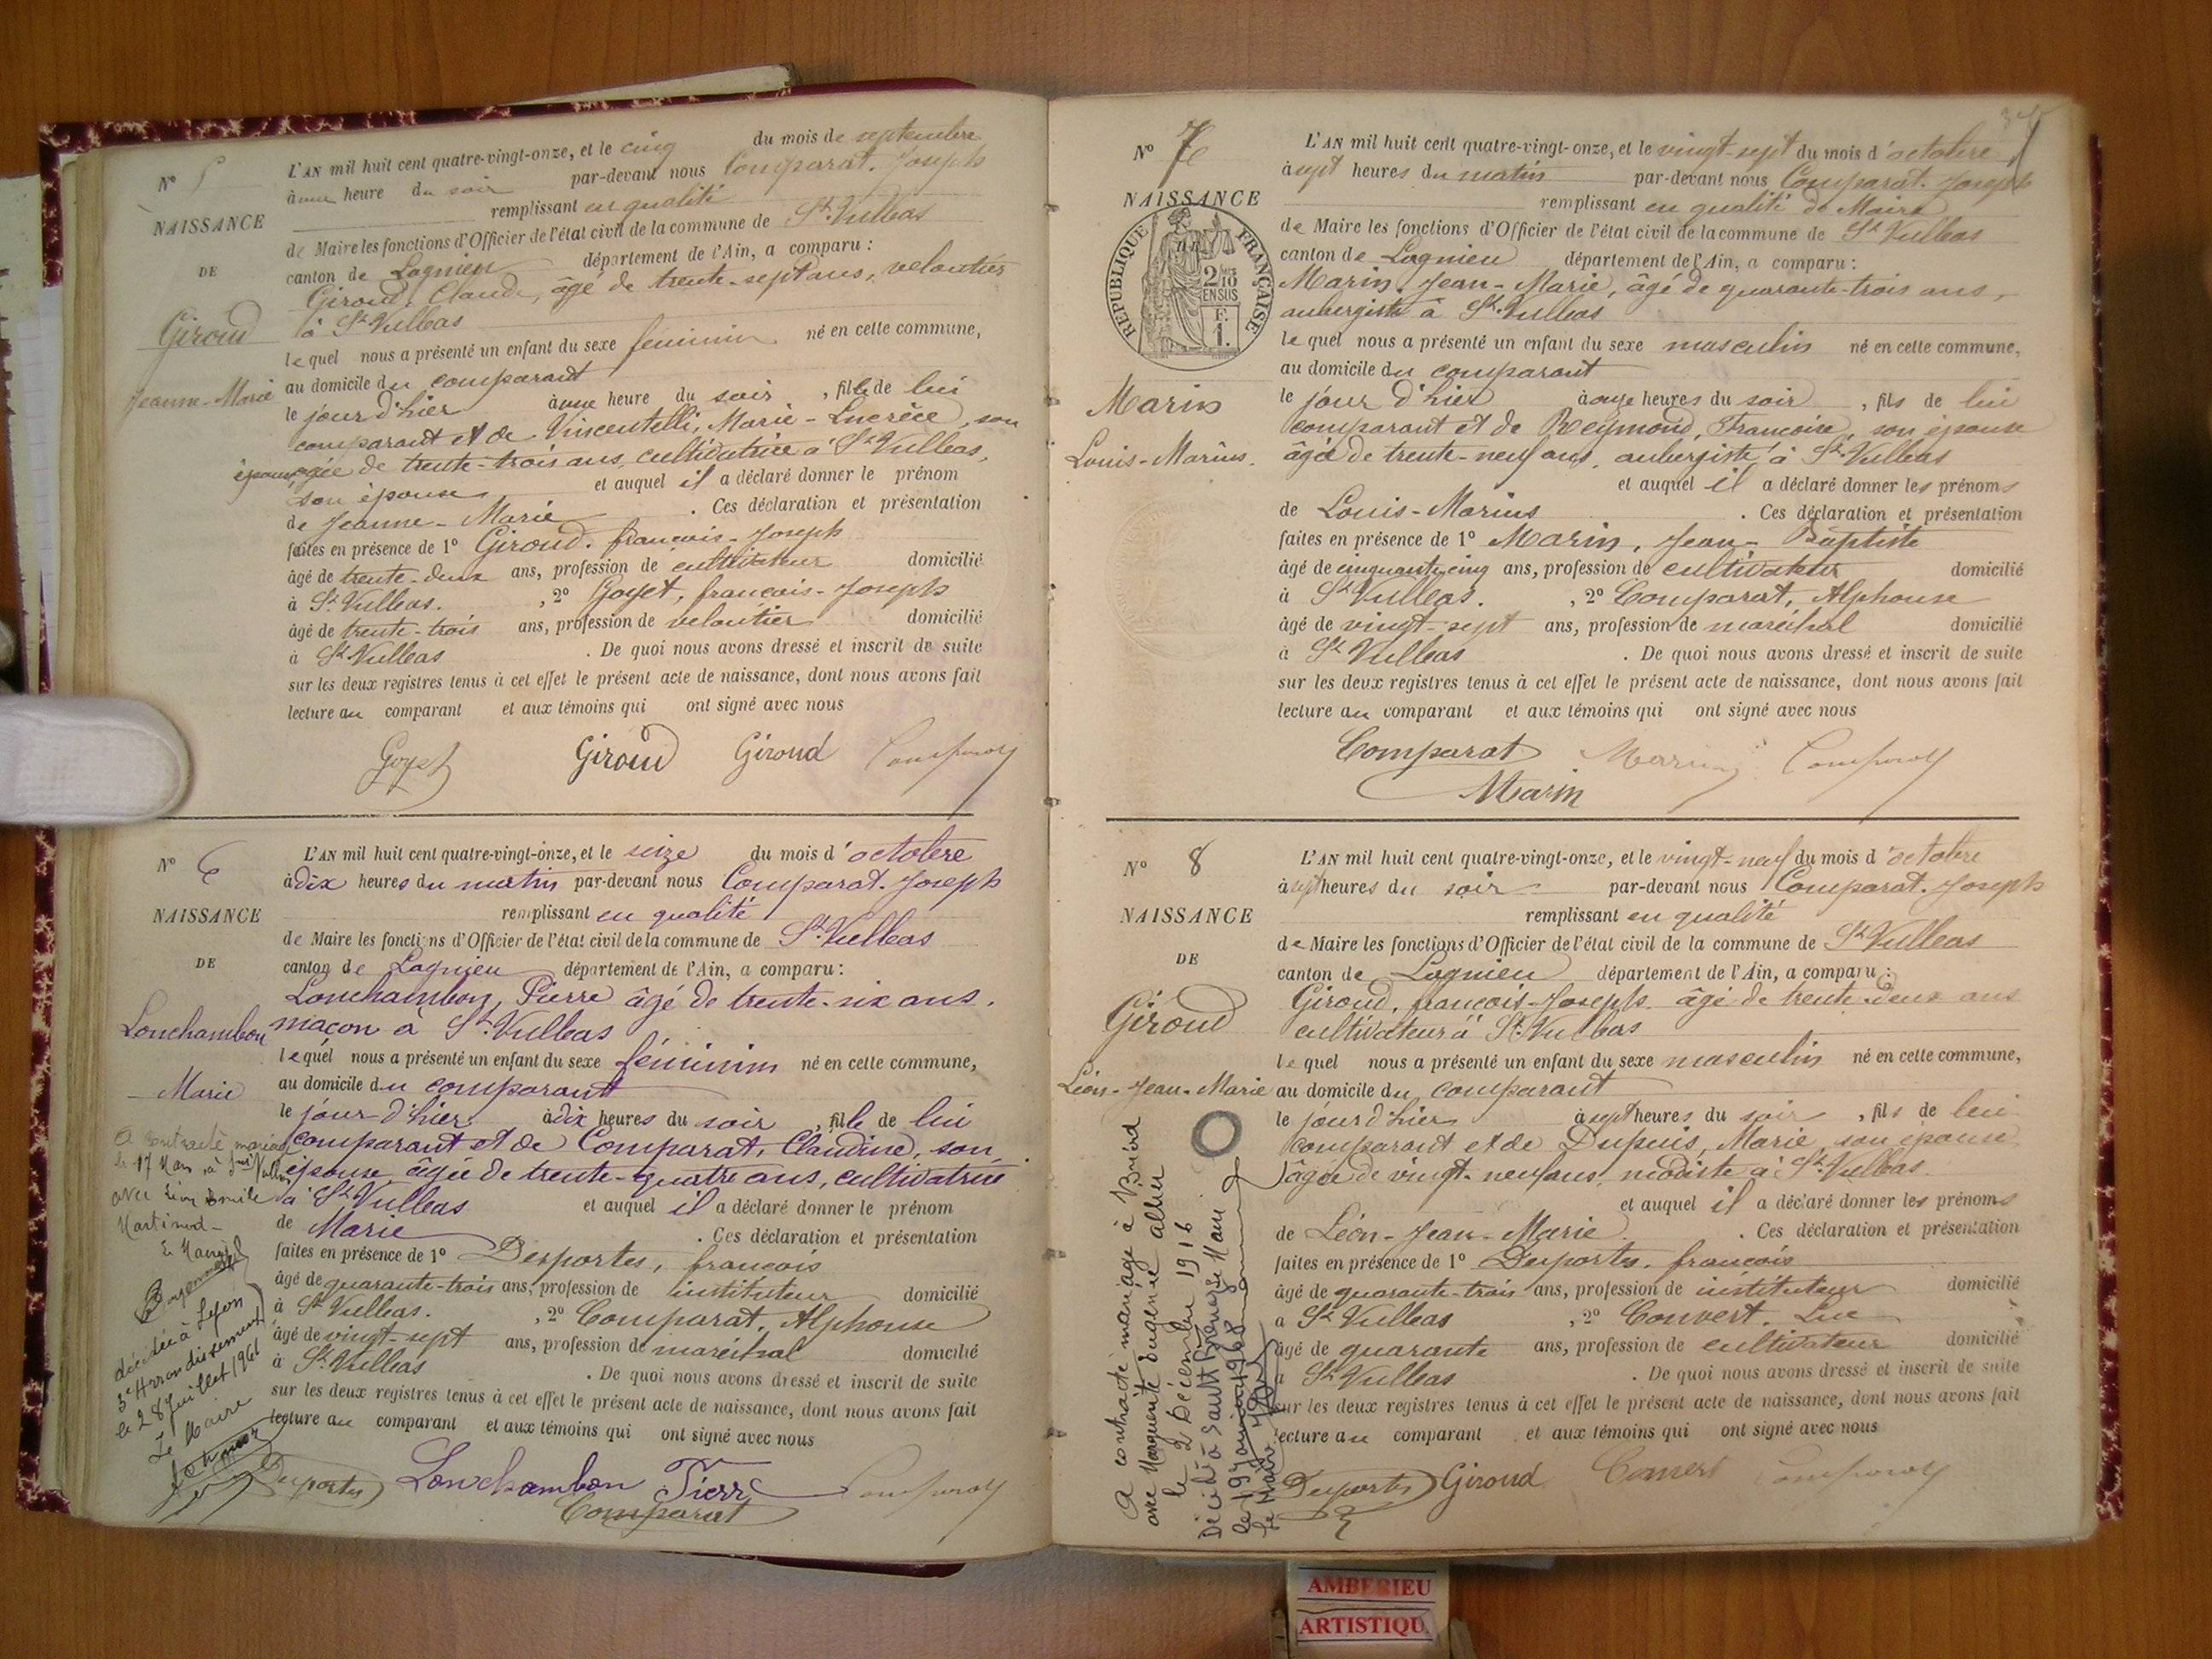 N° 5
NAISSANCE
DE
Giroud
Jeanne-Marie
L'AN mil huit cent quatre-vingt-onze, et le cinq du mois de septembre
à une heure du soir par-devant nous Comparat. Joseph
remplissant en qualité
de Maire les fonctions d'Officier de l'état civil de la commune de St. Vulbas
canton de Lagnieu département de l'Ain, a comparu :
Giroud, Claude, âgé de trente-sept ans, veloutier
à St. Vulbas
le quel nous a présenté un enfant du sexe féminin né en cette commune,
au domicile du comparant
le jour d'hier à une heure du soir, fille de lui
comparant et de Vincentelli, Marie-Lucrèce, son
épouse, âgée de trente-trois ans, cultivatrice à St. Vulbas,
son épouse et auquel il a déclaré donner le prénom
de Jeanne-Marie. Ces déclaration et présentation
faites en présence de 1° Giroud. françois-Joseph
âgé de trente-deux ans, profession de cultivateur domicilié
à St. Vulbas., 2° Goyet, françois-Joseph
âgé de trente-trois ans, profession de veloutier domicilié
à St. Vulbas. De quoi nous avons dressé et inscrit de suite
sur les deux registres tenus à cet effet le présent acte de naissance, dont nous avons fait
lecture au comparant et aux témoins qui ont signé avec nous
Goyet Giroud Giroud Comparat
N° 6
NAISSANCE
DE
Lonchambon
Marie
A contracté mariage
le 17 Mars à Saint Vulbas
avec Léon Emile
Martinod
Le Maire
décédée à Lyon
3e Arrondissement
le 28 Juillet 1961
Le Maire
L'AN mil huit cent quatre-vingt-onze, et le seize du mois d'octobre
à dix heures du matin par-devant nous Comparat. Joseph
remplissant en qualité
de Maire les fonctions d'Officier de l'état civil de la commune de St. Vulbas
canton de Lagnieu département de l'Ain, a comparu :
Lonchambon, Pierre âgé de trente-six ans,
maçon à St. Vulbas
le quel nous a présenté un enfant du sexe féminin né en cette commune,
au domicile du comparant
le jour d'hier à dix heures du soir, fille de lui
comparant et de Comparat, Claudine, son
épouse âgée de trente-quatre ans, cultivatrice
à St. Vulbas et auquel il a déclaré donner le prénom
de Marie. Ces déclaration et présentation
faites en présence de 1° Desportes, françois
âgé de quarante-trois ans, profession de instituteur domicilié
à St. Vulbas., 2° Comparat, Alphonse
âgé de vingt-sept ans, profession de maréchal domicilié
à St. Vulbas. De quoi nous avons dressé et inscrit de suite
sur les deux registres tenus à cet effet le présent acte de naissance, dont nous avons fait
lecture au comparant et aux témoins qui ont signé avec nous
Desportes Lonchambon Pierre Comparat
Comparat
N° 7
NAISSANCE
REPUBLIQUE FRANÇAISE
2/10 EN SUS
F. 1.
Marin
Louis-Marius.
L'AN mil huit cent quatre-vingt-onze, et le vingt-sept du mois d'octobre
à sept heures du matin par-devant nous Comparat. Joseph
remplissant en qualité de Maire
de Maire les fonctions d'Officier de l'état civil de la commune de St. Vulbas
canton de Lagnieu département de l'Ain, a comparu :
Marin, Jean-Marie, âgé de quarante-trois ans,
aubergiste à St. Vulbas
le quel nous a présenté un enfant du sexe masculin né en cette commune,
au domicile du comparant
le jour d'hier à onze heures du soir, fils de lui
comparant et de Reymond, Françoise, son épouse
âgée de trente-neuf ans, aubergiste à St. Vulbas
et auquel il a déclaré donner les prénoms
de Louis-Marius. Ces déclaration et présentation
faites en présence de 1° Marin, Jean-Baptiste
âgé de cinquante-cinq ans, profession de cultivateur domicilié
à St Vulbas., 2° Comparat, Alphonse
âgé de vingt-sept ans, profession de maréchal domicilié
à St. Vulbas. De quoi nous avons dressé et inscrit de suite
sur les deux registres tenus à cet effet le présent acte de naissance, dont nous avons fait
lecture au comparant et aux témoins qui ont signé avec nous
Comparat Marin Comparat
Marin
N° 8
NAISSANCE
DE
Giroud
Léon-Jean-Marie
A contracté mariage à Briord
avec Marguerite Eugénie
le 2 Décembre 1916
Décédé à Sault Brénaz
le 19 1968
le Maire
L'AN mil huit cent quatre-vingt-onze, et le vingt-neuf du mois d'octobre
à sept heures du soir par-devant nous Comparat. Joseph
remplissant en qualité
de Maire les fonctions d'Officier de l'état civil de la commune de St. Vulbas
canton de Lagnieu département de l'Ain, a comparu :
Giroud, françois-Joseph. âgé de trente-deux ans
cultivateur à St. Vulbas
le quel nous a présenté un enfant du sexe masculin né en cette commune,
au domicile du comparant
le jour d'hier à sept heures du soir, fils de lui
comparant et de Dupuis, Marie, son épouse
âgée de vingt-neuf ans, modiste à St. Vulbas.
et auquel il a déclaré donner les prénoms
de Léon-Jean-Marie. Ces déclaration et présentation
faites en présence de 1° Desportes. françois
âgé de quarante-trois ans, profession de instituteur domicilié
à St. Vulbas, 2° Convert. Luc
âgé de quarante ans, profession de cultivateur domicilié
à St. Vulbas. De quoi nous avons dressé et inscrit de suite
sur les deux registres tenus à cet effet le présent acte de naissance, dont nous avons fait
lecture au comparant et aux témoins qui ont signé avec nous
Desportes Giroud Convert Comparat
AMBERIEU
ARTISTIQU